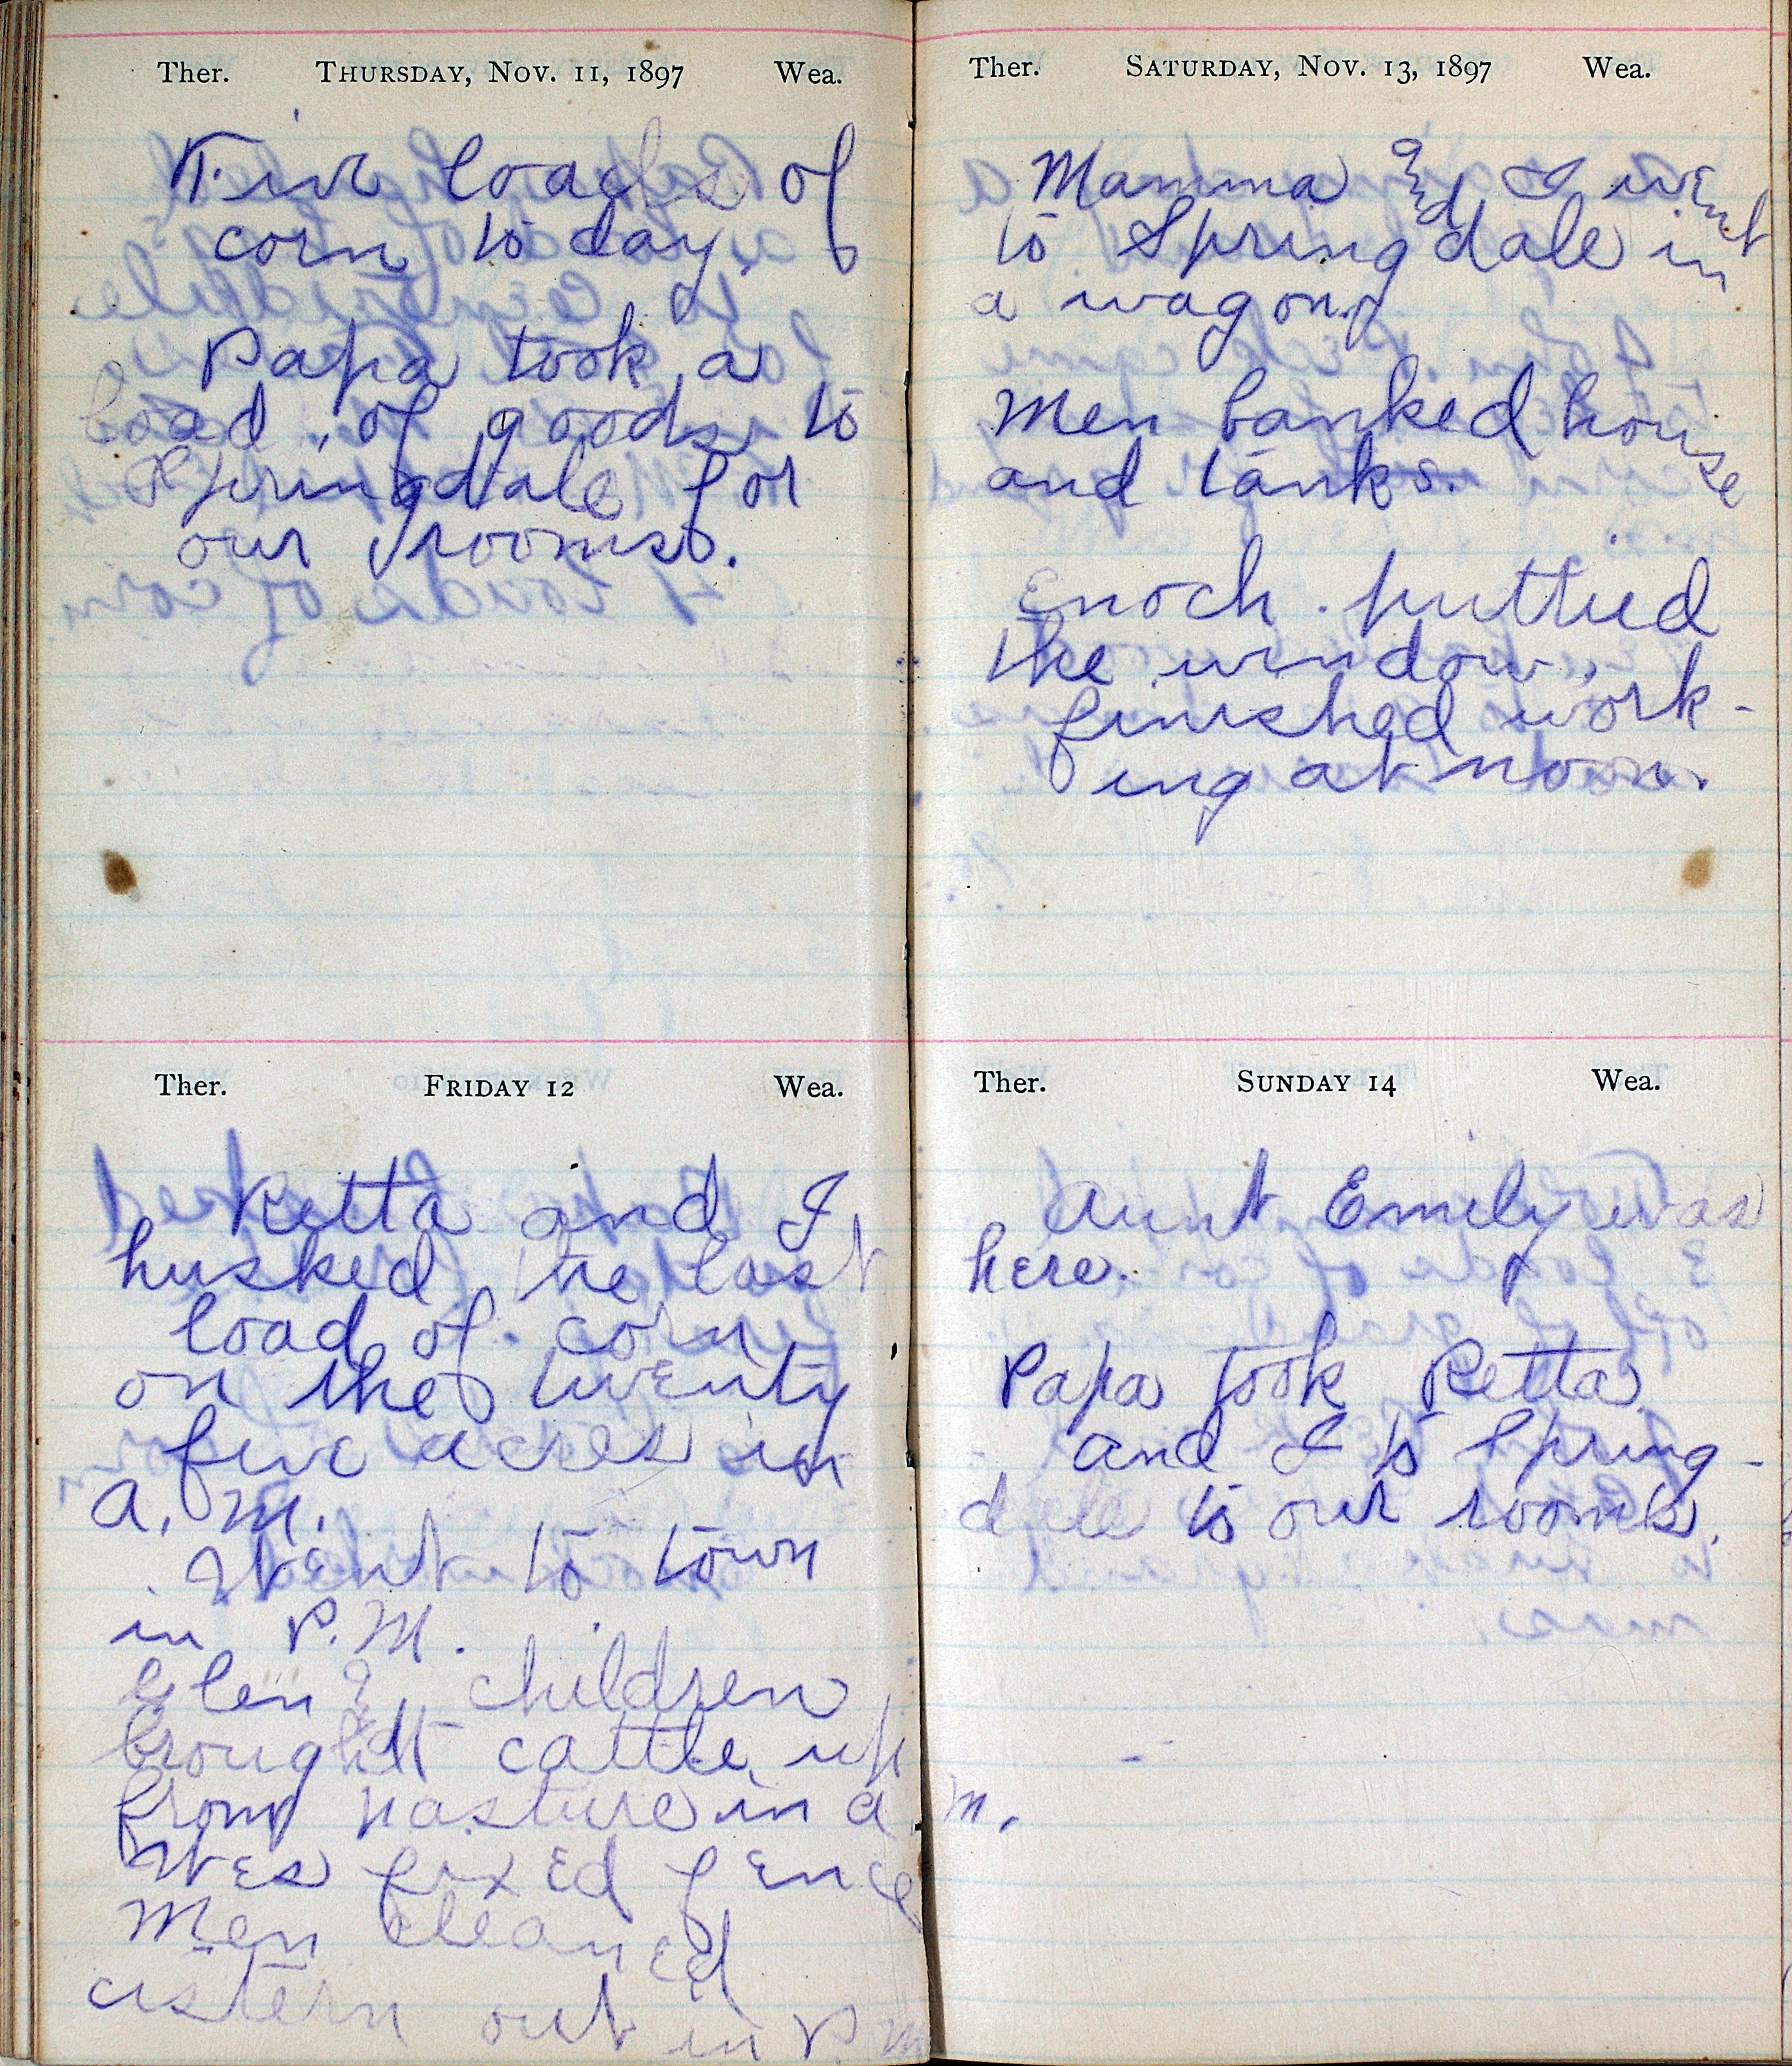 Ther. THURSDAY, NOV. 11, 1897 Wea.
Five loads of
corn to day.
Papa took a
load of goods to
Springdale for
our rooms.
Ther. FRIDAY 12 Wea.
Retta and I
husked the last
load of corn
on the twenty
five acres in
a. m.
Went to town
in P. M.
Glen & children
brought cattle up
from pasture in a m.
Wes fixed fence
Men cleaned
cistern out in P. M
Ther. SATURDAY, NOV. 13, 1897 Wea.
Mamma and I went
to Springdale in
a wagon.
Men banked house
and tanks.
Enoch puttied
the window,
finished work-
ing at noon.
Ther. SUNDAY 14 Wea.
Aunt Emily was
here.
Papa took Retta
and I to Spring-
dale to our rooms.